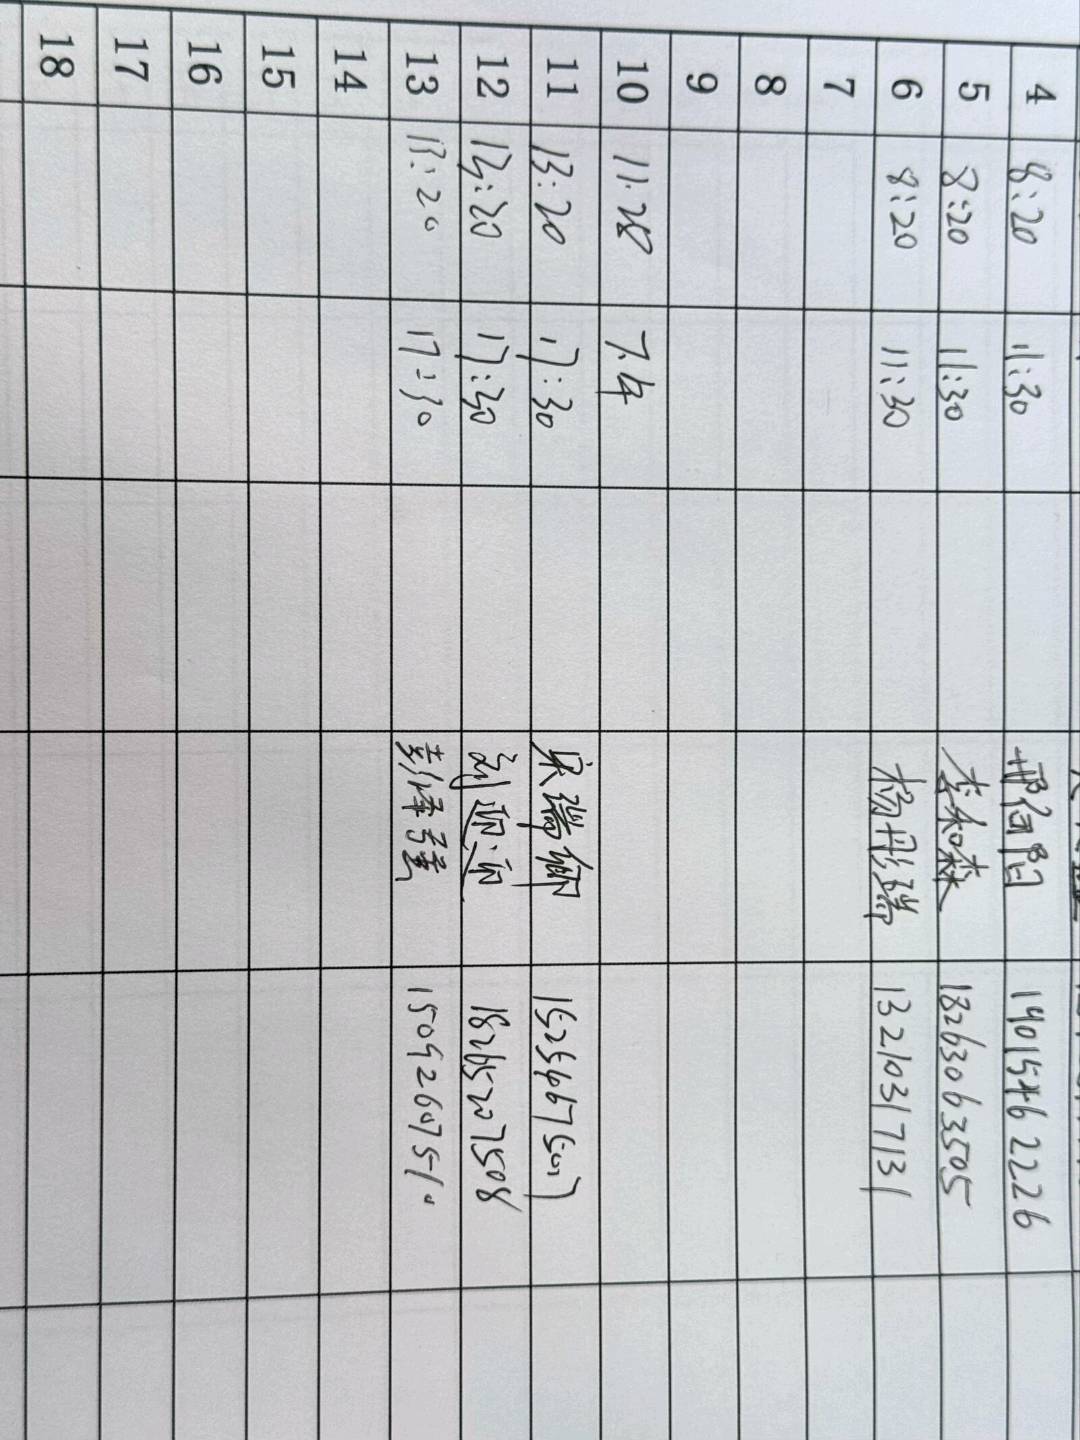 4 8:20 11:30 14015462226
5 8:20 11:30 李知森 18263063505
6 8:20 11:30 杨彤瑞 13210317131
7
8
9
10 11.28 7.4
11 13:20 17:30 宋瑞
12 13:20 17:30 18265207508
13 13:20 17:30 彭泽 15092607510
14
15
16
17
18